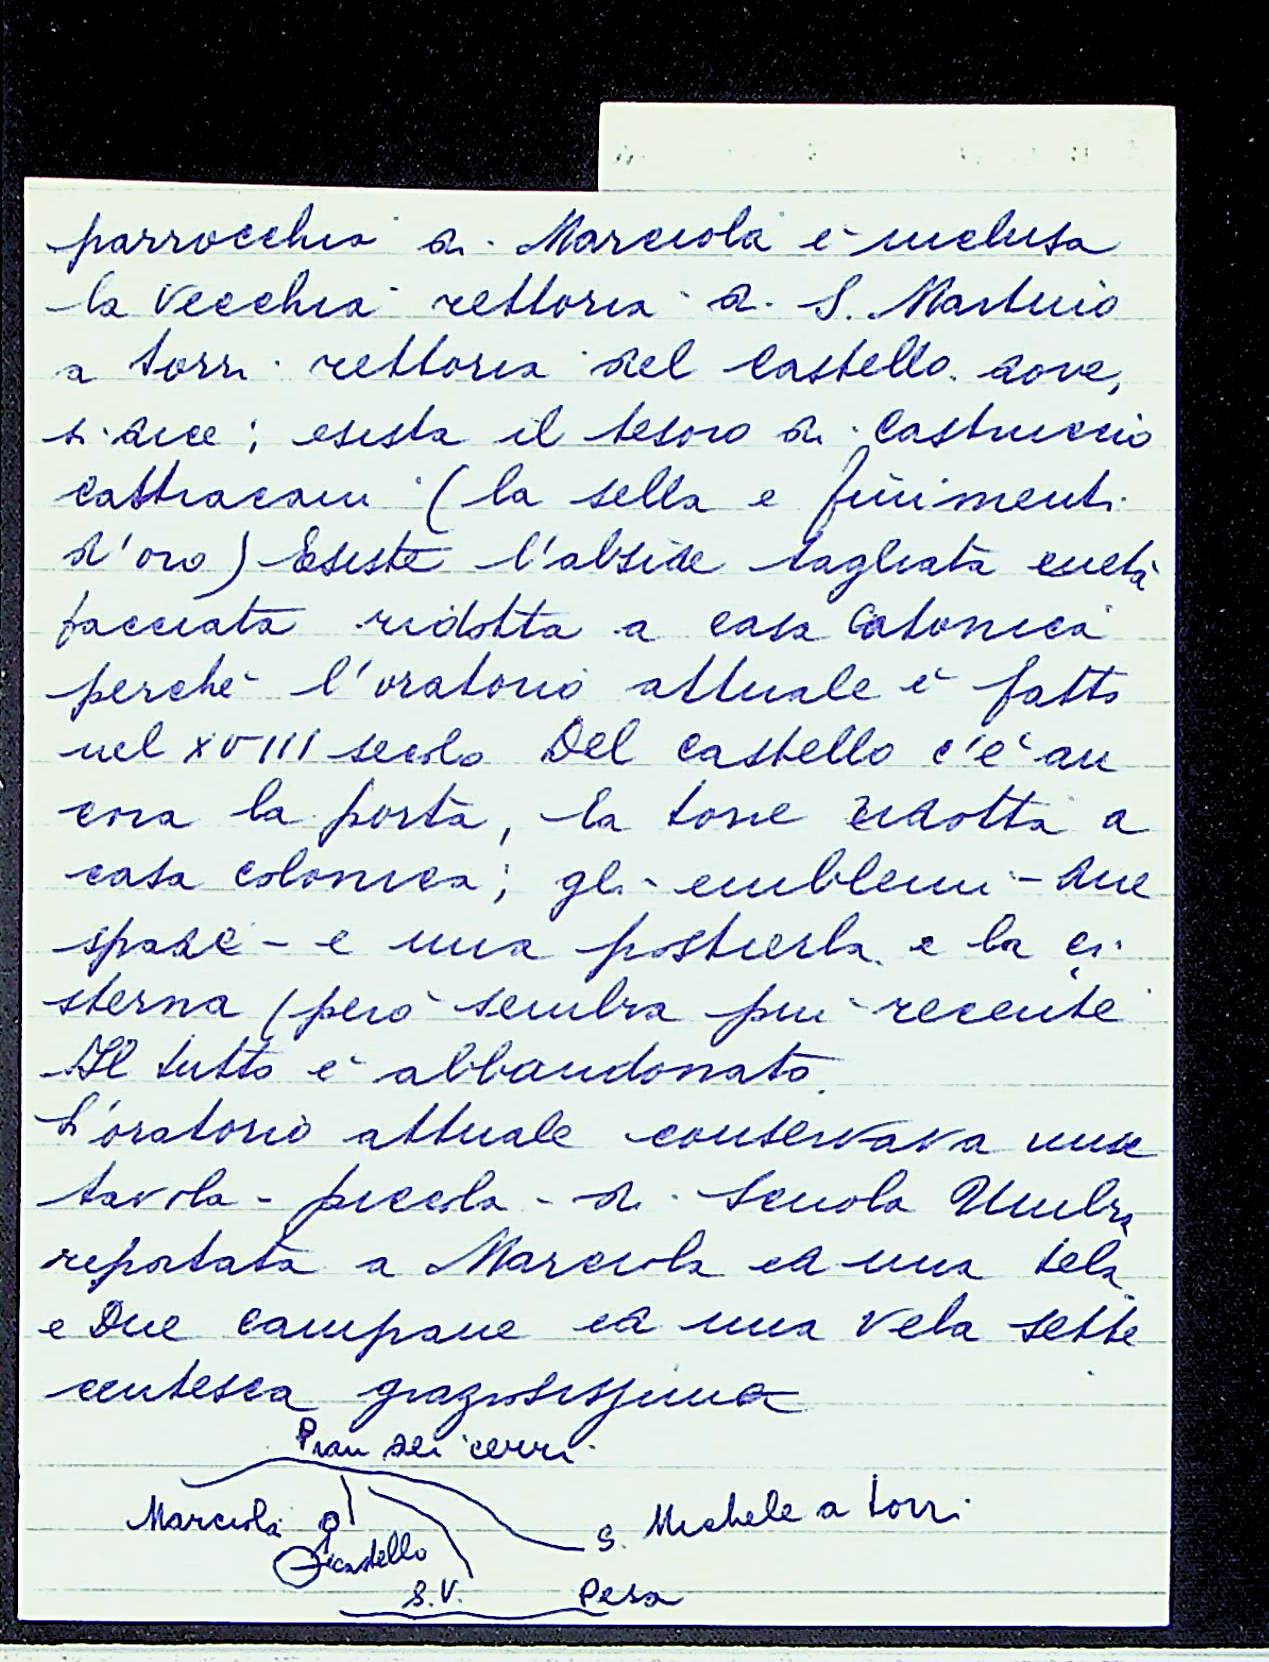 parrocchia di Marciola è inclusa
la vecchia rettoria di S. Martino
a torri rettoria del Castello dove,
si dice; esista il tesoro di Castruccio
Castracani (la sella e finimenti
d'oro) Esiste l'abside tagliata e metà
facciata ridotta a casa colonica
perchè l'oratorio attuale è fatto
nel XVIII secolo Del castello c'è an
cora la porta, la torre ridotta a
casa colonica; gli emblemi - due
spade - e una postierla e la ci
sterna (però sembra più recente
Il tutto è abbandonato.
L'oratorio attuale conservava una
tavola - piccola - di Scuola Umbra
reportata a Marciola ed una tela
e due campane ed una vela sette
centesca graziosissima
Pian dei cerri
Marciola S. Michele a torri
castello
S.V. Pesa